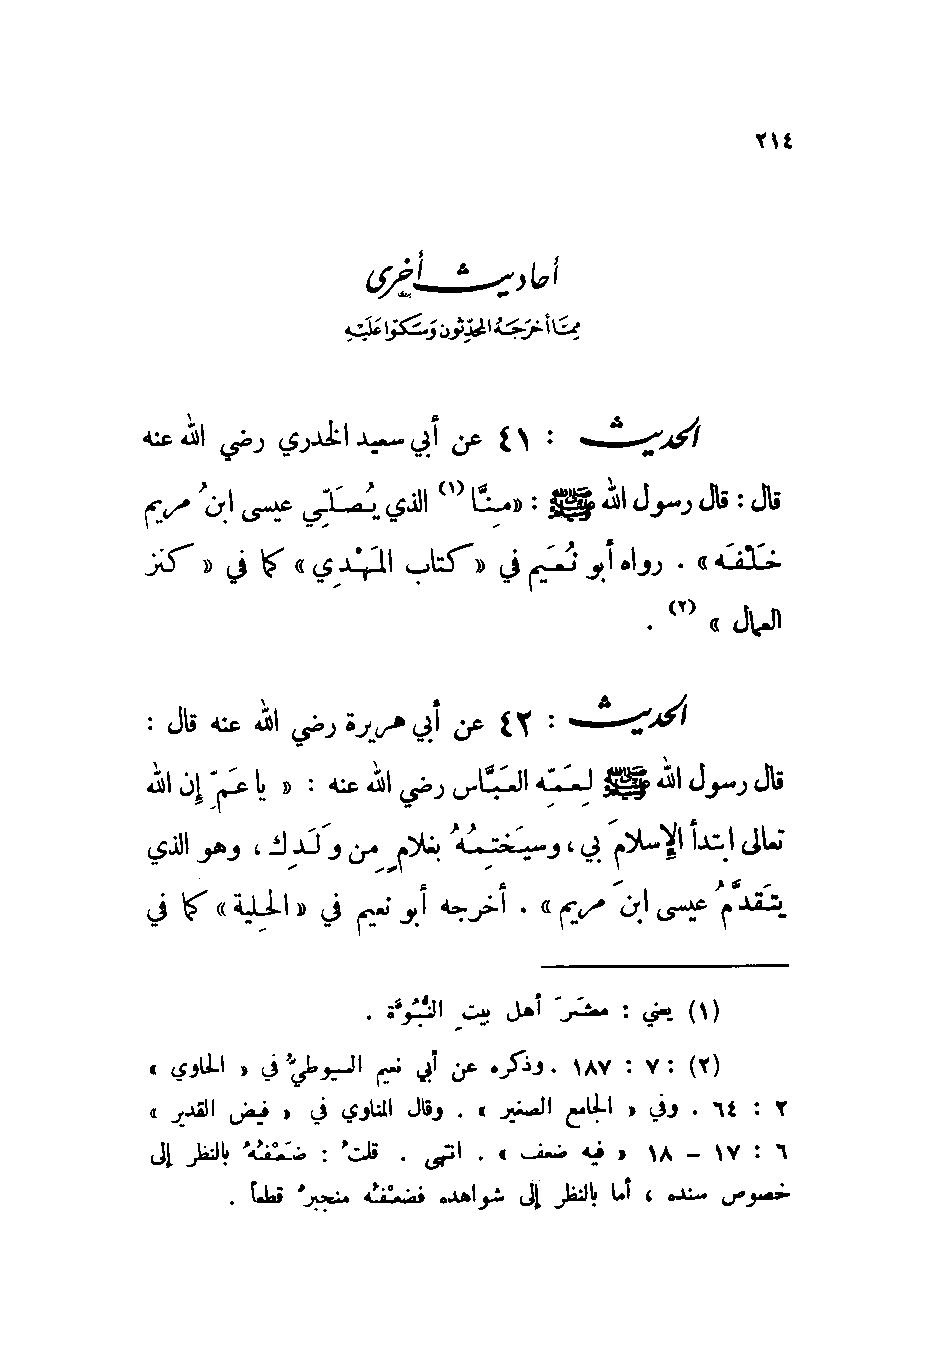 ٢١٤
أحاديث أخرى
مِمَّا أخرَجَهُ المحدِّثون وَسَكتوا عَلَيْهِ
الحديث ٤١ : عن أبي سعيد الخدري رضي الله عنه
قال : قال رسول الله ﷺ : «مِنَّا (١) الذي يُصَلِّي عيسى ابنُ مريم
خَلْفَه » . رواه أبو نُعَيم في «كتاب المَهْدِي » كما في « كنز
العمال » (٢) .
الحديث ٤٢ : عن أبي هريرة رضي الله عنه قال :
قال رسول الله ﷺ لِعَمِّه العبَّاس رضي الله عنه : « يا عَمِّ إن الله
تعالى ابتدأ الإسلامَ بي ، وسيَختِمُهُ بغلامٍ مِن وَلَدِك ، وهو الذي
يتَقدَّمُ عيسى ابنَ مريم » . أخرجه أبو نعيم في «الحِلية» كما في
(١) يعني : معشَرَ أهل بيتِ النُّبُوَّة .
(٢) : ٧ : ١٨٧ . وذكره عن أبي نعيم السيوطيُّ في « الحاوي »
٢ : ٦٤ . وفي « الجامع الصغير » . وقال المناوي في « فيض القدير »
٦ : ١٧ – ١٨ « فيه ضعف » . انتهى . قلتُ : ضَعْفُهُ بالنظر إلى
خصوص سنده ، أما بالنظر إلى شواهده فضعْفُه منجبرٌ قطعاً .